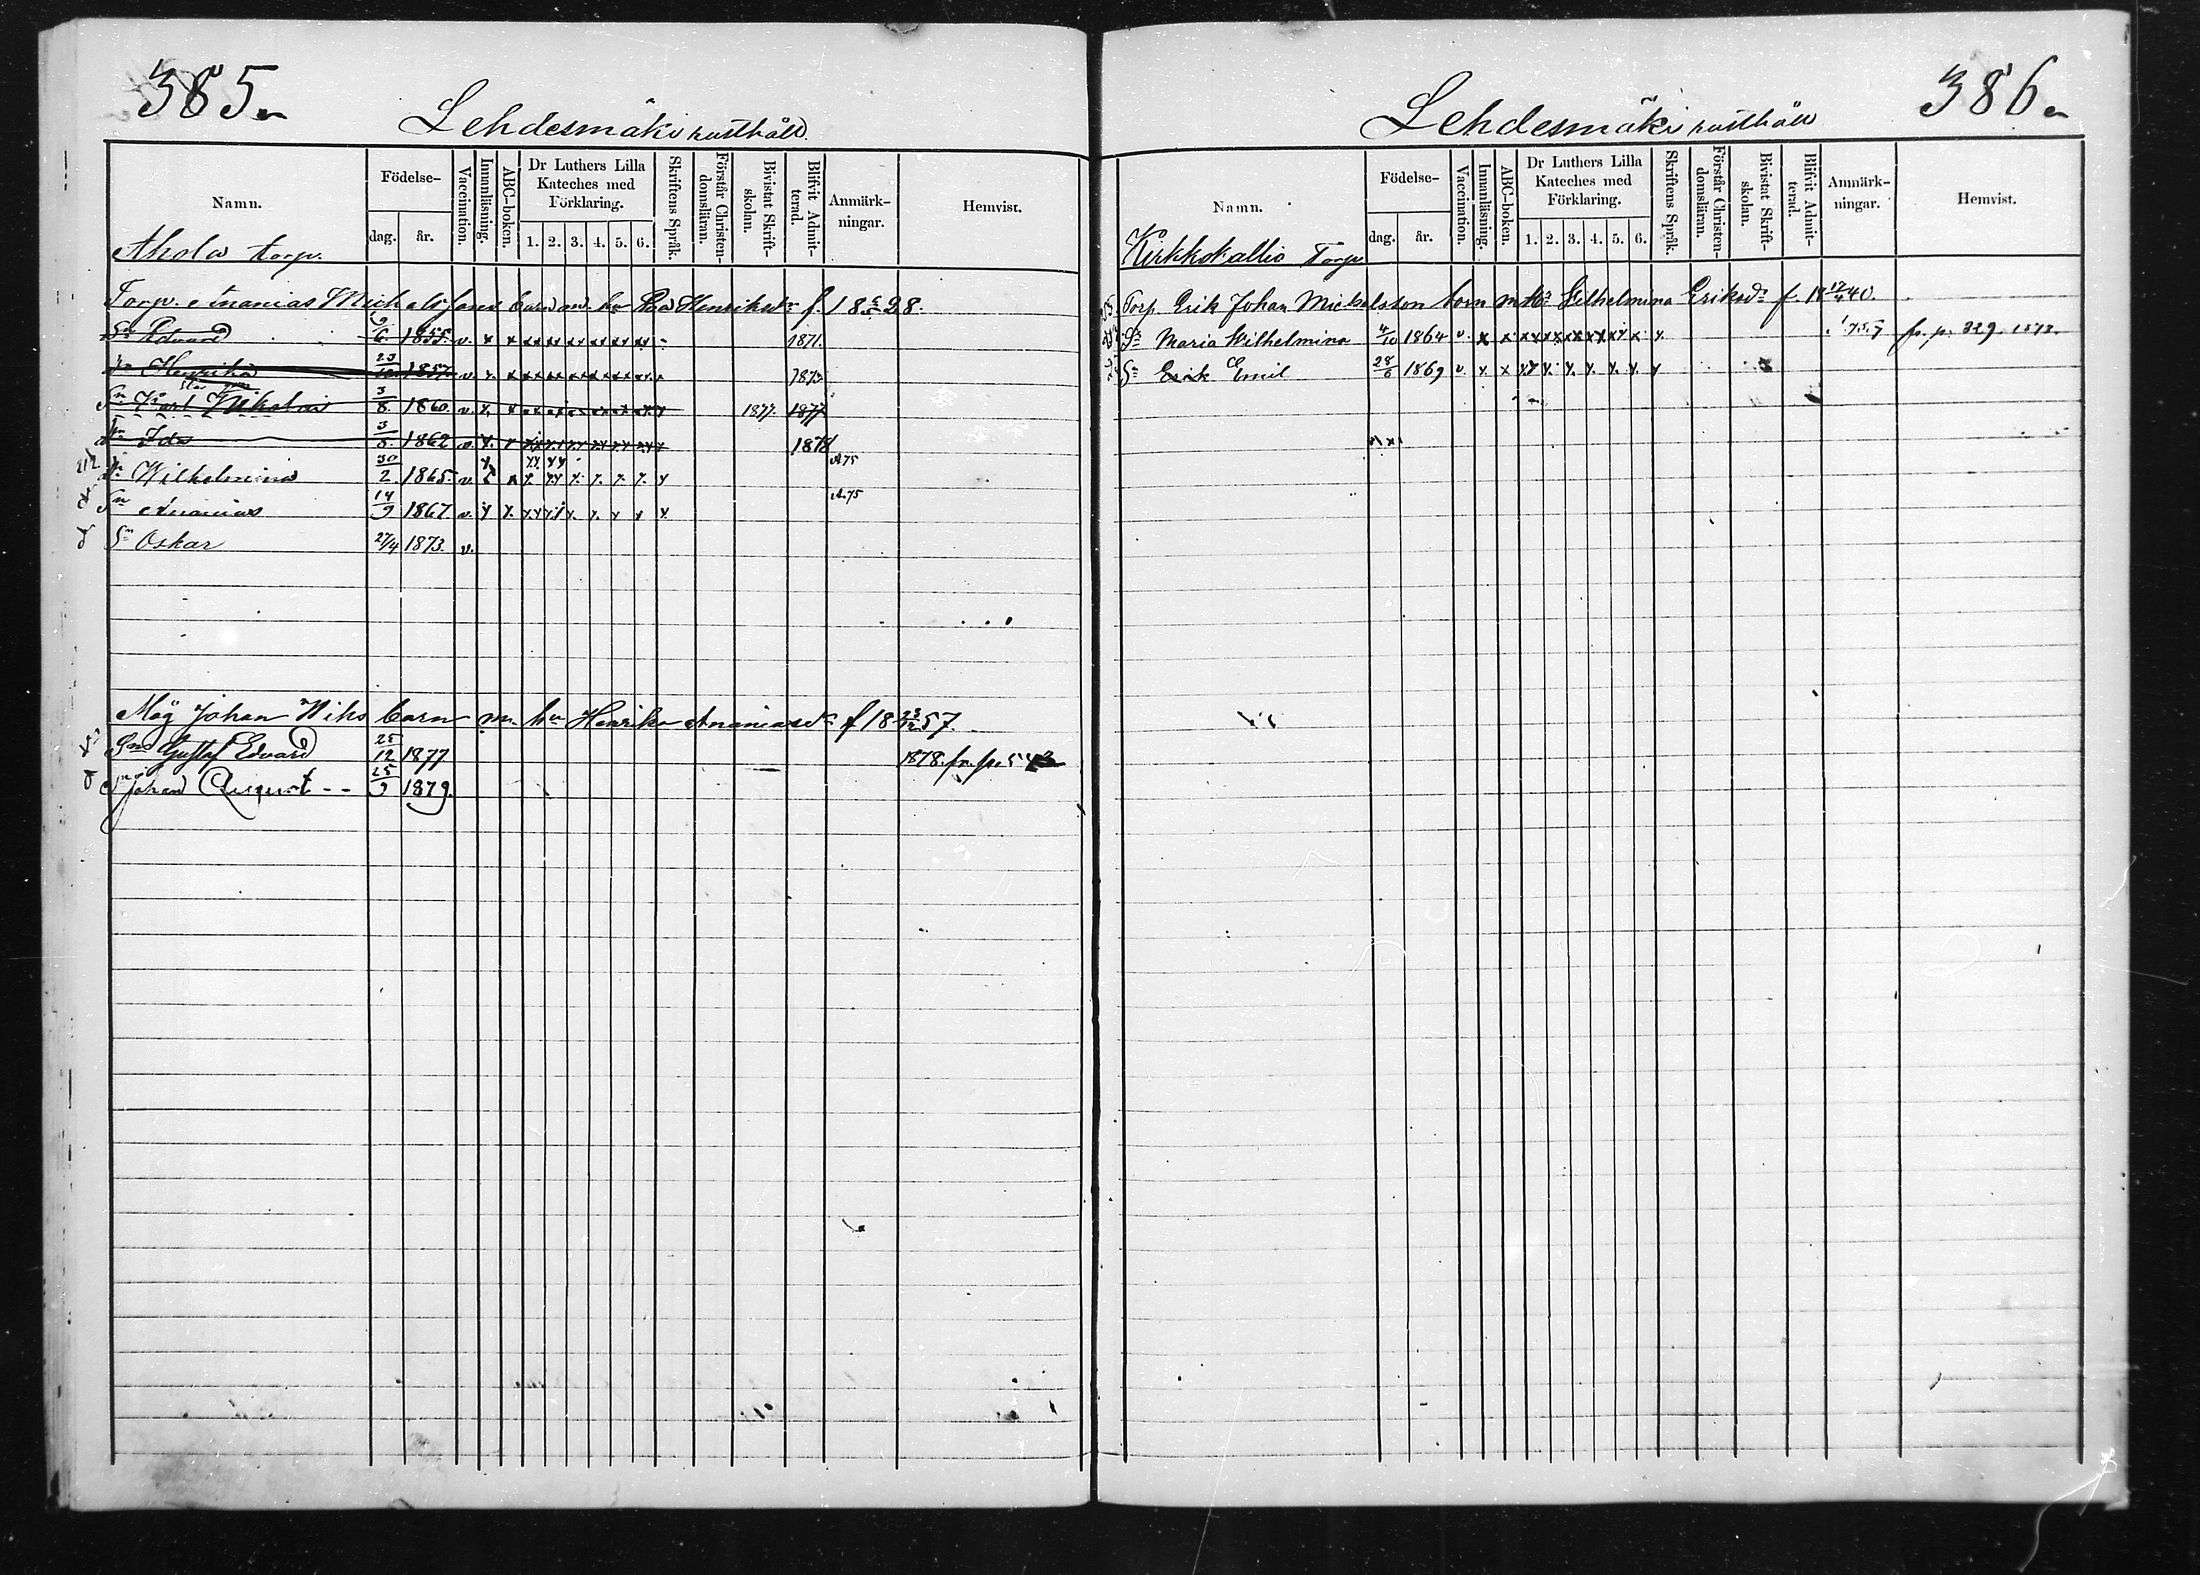 385.
Lehdesmäki rusthåll.
Namn.
Födelse-
dag. år.
Vaccination.
Innanläsning.
ABC-boken.
Dr Luthers Lilla
Kateches med
Förklaring.
1. 2. 3. 4. 5. 6.
Skriftens Språk.
Förstår Christen-
domsläran.
Bivistat Skrift-
skolan.
Blifvit Admit-
terad.
Anmärk-
ningar.
Hemvist.
Ahola torp.
Torp. Ananias Michelssons barn m. hu Henriksdr f. 18 28.
Sn Edvard 6 1855. v. 1871.
Dr Henrika 1857 v. 1873.
Sn Karl Nikolai 3/8 1860. v. 1877. 1877
Dr Ida 3/8 1862 v. 1878
Dr Wilhelmina 30/2 1865. v. A75
Sn Ananias 14/9 1867 v. A.75
Sn Oskar 27/4 1873. v.
Måg Johan Wiks barn m. hu Henrika Ananiasdr f 18 23/12 57.
Sn Gustaf Edvard 25/12 1877 1878. fr. p.
Sn Johan August 25/9 1879.
386.
Lehdesmäki rusthåll
Namn.
Födelse-
dag. år.
Vaccination.
Innanläsning.
ABC-boken.
Dr Luthers Lilla
Kateches med
Förklaring.
1. 2. 3. 4. 5. 6.
Skriftens Språk.
Förstår Christen-
domsläran.
Bivistat Skrift-
skolan.
Blifvit Admit-
terad.
Anmärk-
ningar.
Hemvist.
Kirkkokallio Torp
Torp. Erik Johan Michelsson barn m. Wilhelmina Eriksdr f. 18 40.
Dr Maria Wilhelmina 4/10 1864 v. fr. p. 329. 1873.
Sn Erik Emil 28/6 1869 v